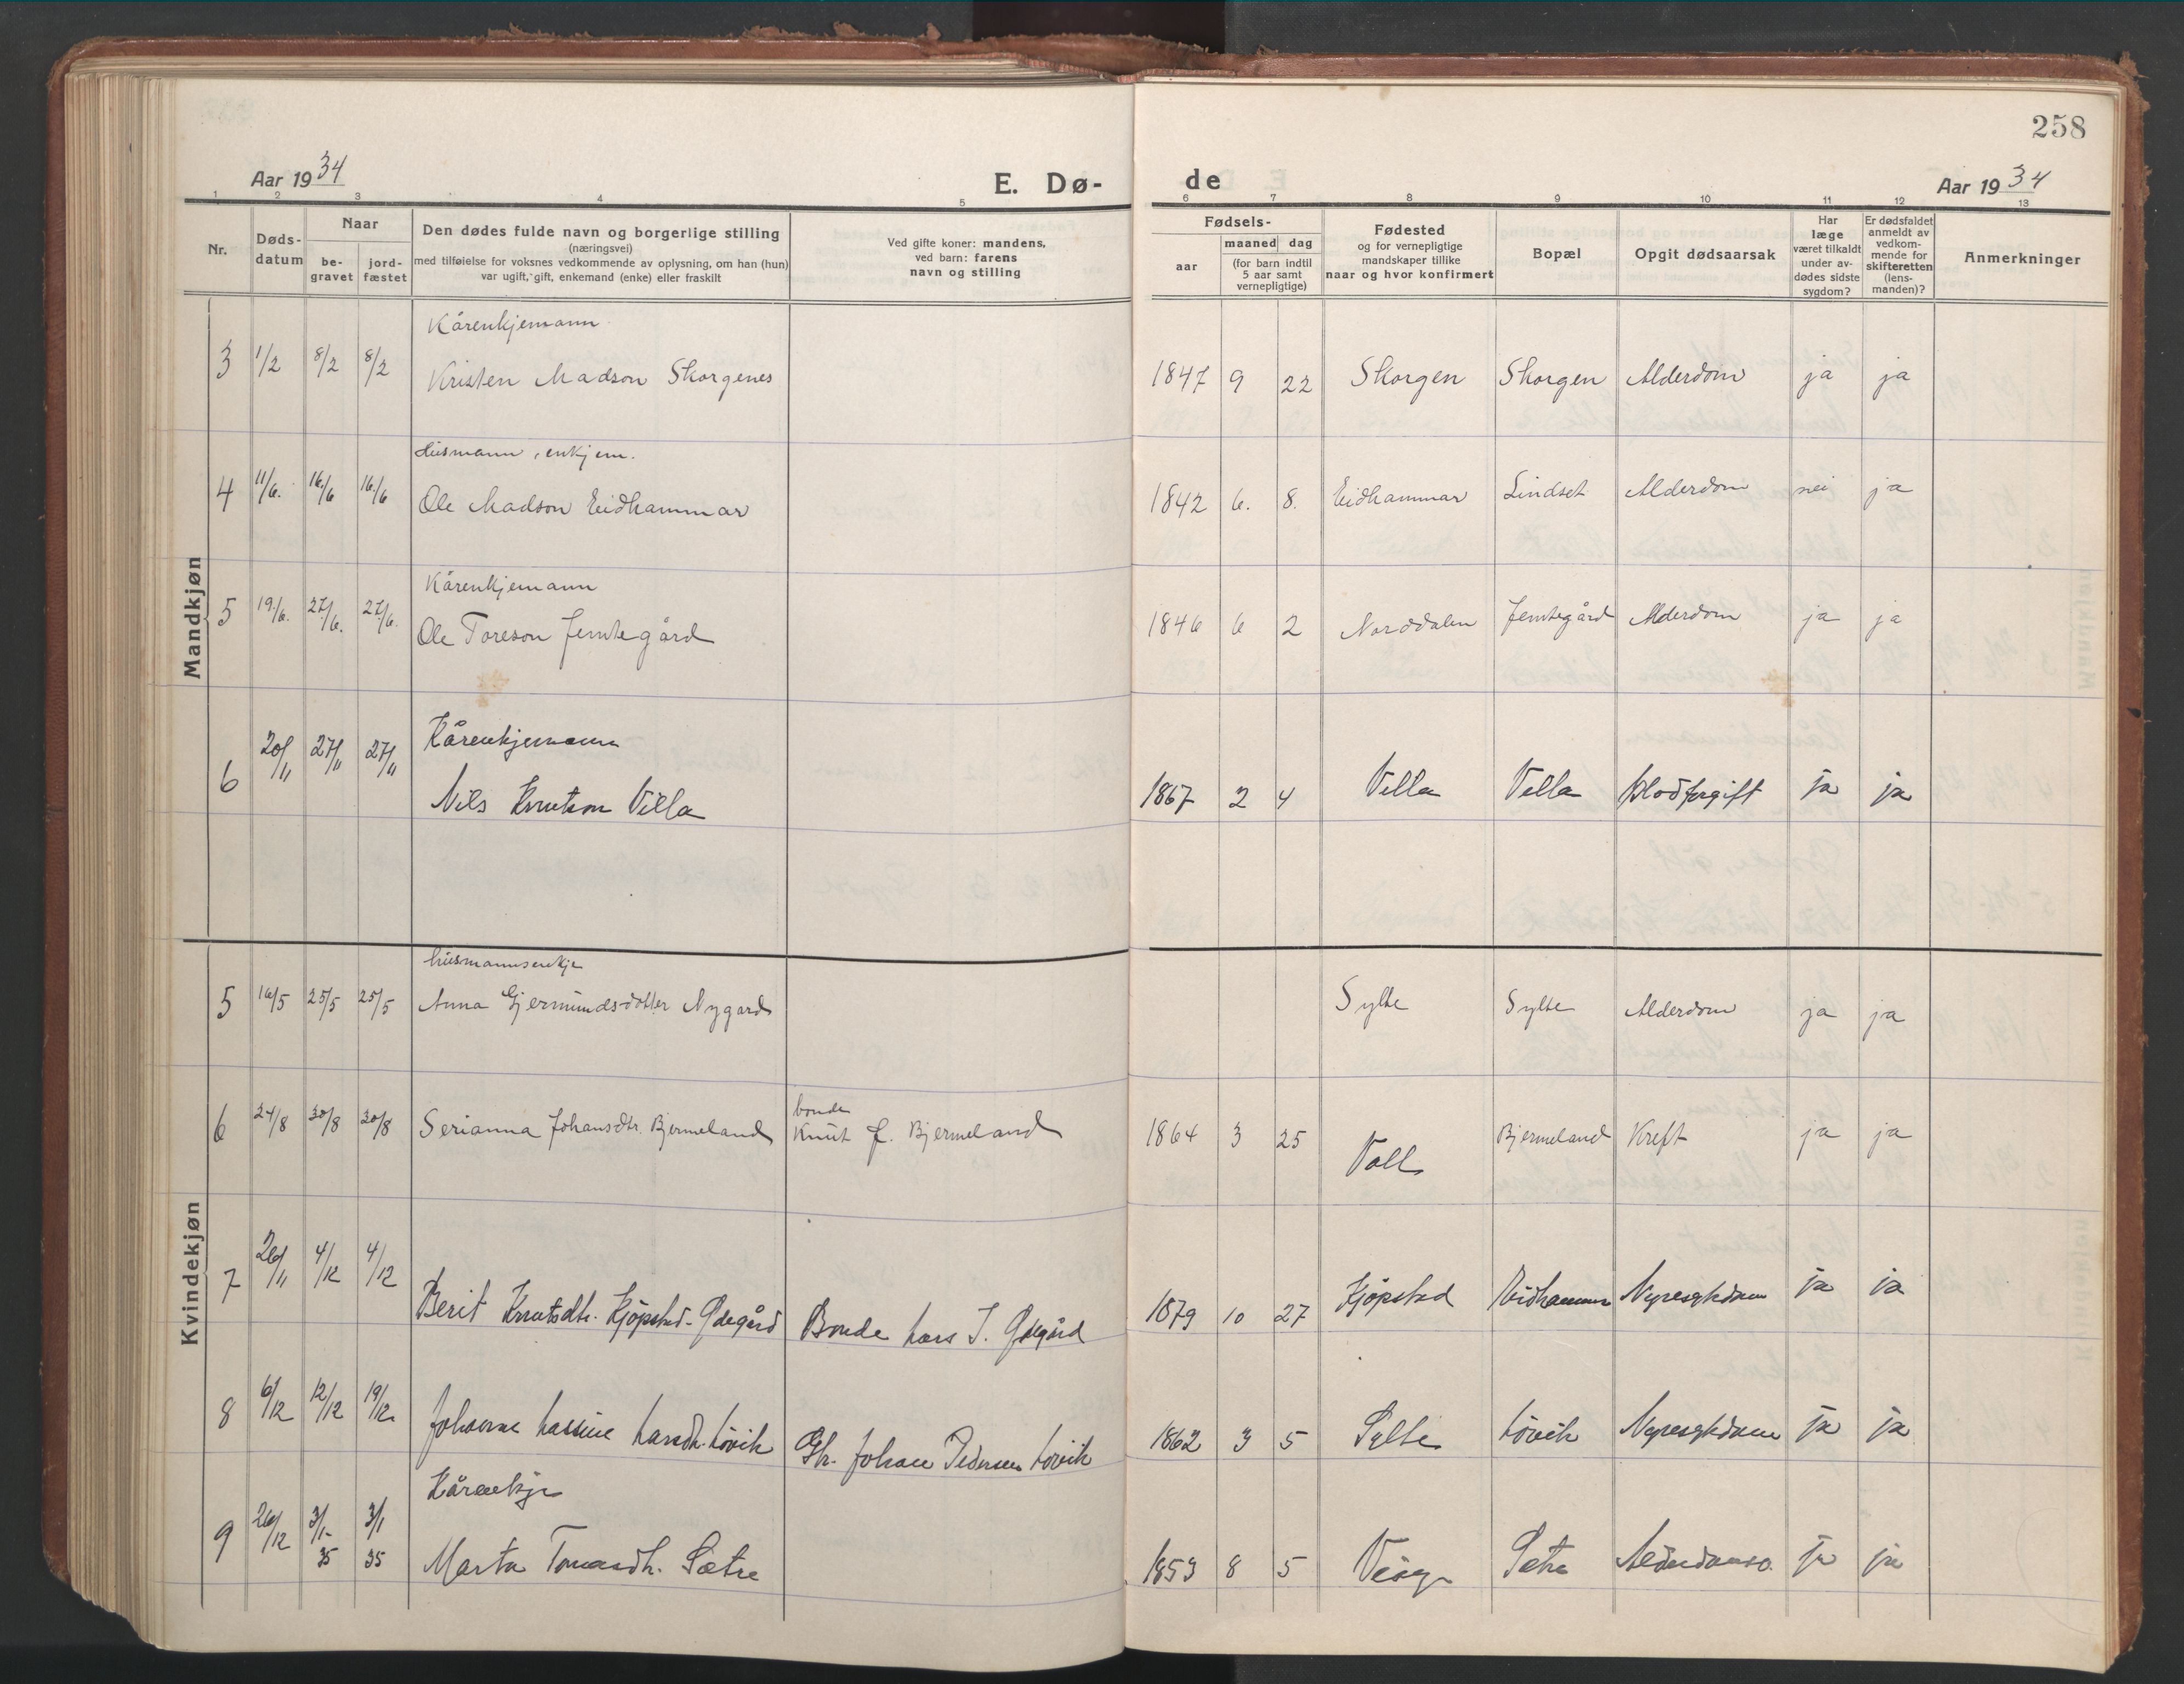 258
Aar 1934
E. Dø-
de
Aar 1934
1 2 3 4 5 6 7 8 9 10 11 12 13
Nr.
Døds-
datum
Naar
be-
gravet
jord-
fæstet
Den dødes fulde navn og borgerlige stilling
(næringsvei)
med tilføielse for voksnes vedkommende av oplysning, om han (hun)
var ugift, gift, enkemand (enke) eller fraskilt
Ved gifte koner: mandens,
ved barn: farens
navn og stilling
Fødsels-
aar
maaned dag
(for barn indtil
5 aar samt
vernepligtige)
Fødested
og for vernepligtige
mandskaper tillike
naar og hvor konfirmert
Bopæl
Opgit dødsaarsak
Har
læge
været tilkaldt
under av-
dødes sidste
sygdom?
Er dødsfaldet
anmeldt av
vedkom-
mende for
skifteretten
(lens-
manden)?
Anmerkninger
Mandkjøn
Kårenkjemann
3 1/2 8/2 8/2 Kristen Madson Skorgenes 1847 9 22 Skorgen Skorgen Alderdom ja ja
Husmann, enkjem.
4 11/6. 16/6 16/6 Ole Madson Eidhammar 1842 6. 8. Eidhammar Lindset Alderdom nei ja
Kårenkjemann
5 19/6. 27/6. 27/6. Ole Toreson Jemtegård 1846 6 2 Norddalen Jemtegård Alderdom ja ja
Kårenkjemann
6 20/11 27/11 27/11 Nils Knutson Villa 1867 2 4 Villa Villa Blodforgift ja ja
Kvindekjøn
husmannsenkje
5 16/5 25/5 25/5 Anna Gjermunds-dotter Nygard Sylte Sylte Alderdom ja ja
bonde
6 24/8 30/8 30/8 Serianna Johansdtr. Bjermeland Knut J. Bjermeland 1864 3 25 Voll Bjermeland Kreft ja ja
7 26/11 4/12 4/12 Berit Knutsdtr. Kjøpstad-Ødegård Bonde Lars J. Ødegård 1879 10 27 Kjøpstad Eidhammer Nyresykdom ja ja
8 6/12 12/12 19/12 Johanne Lassine Larsdtr. Løvik Gb. Johan Pedersen Løvik 1862 3 5 Sylte Løvik Nyresykdom ja ja
Kårenkje
9 26/12 3/1- 35 3/1 35 Marta Tomasdtr. Sætre 1853 8 5 Setre ja ja